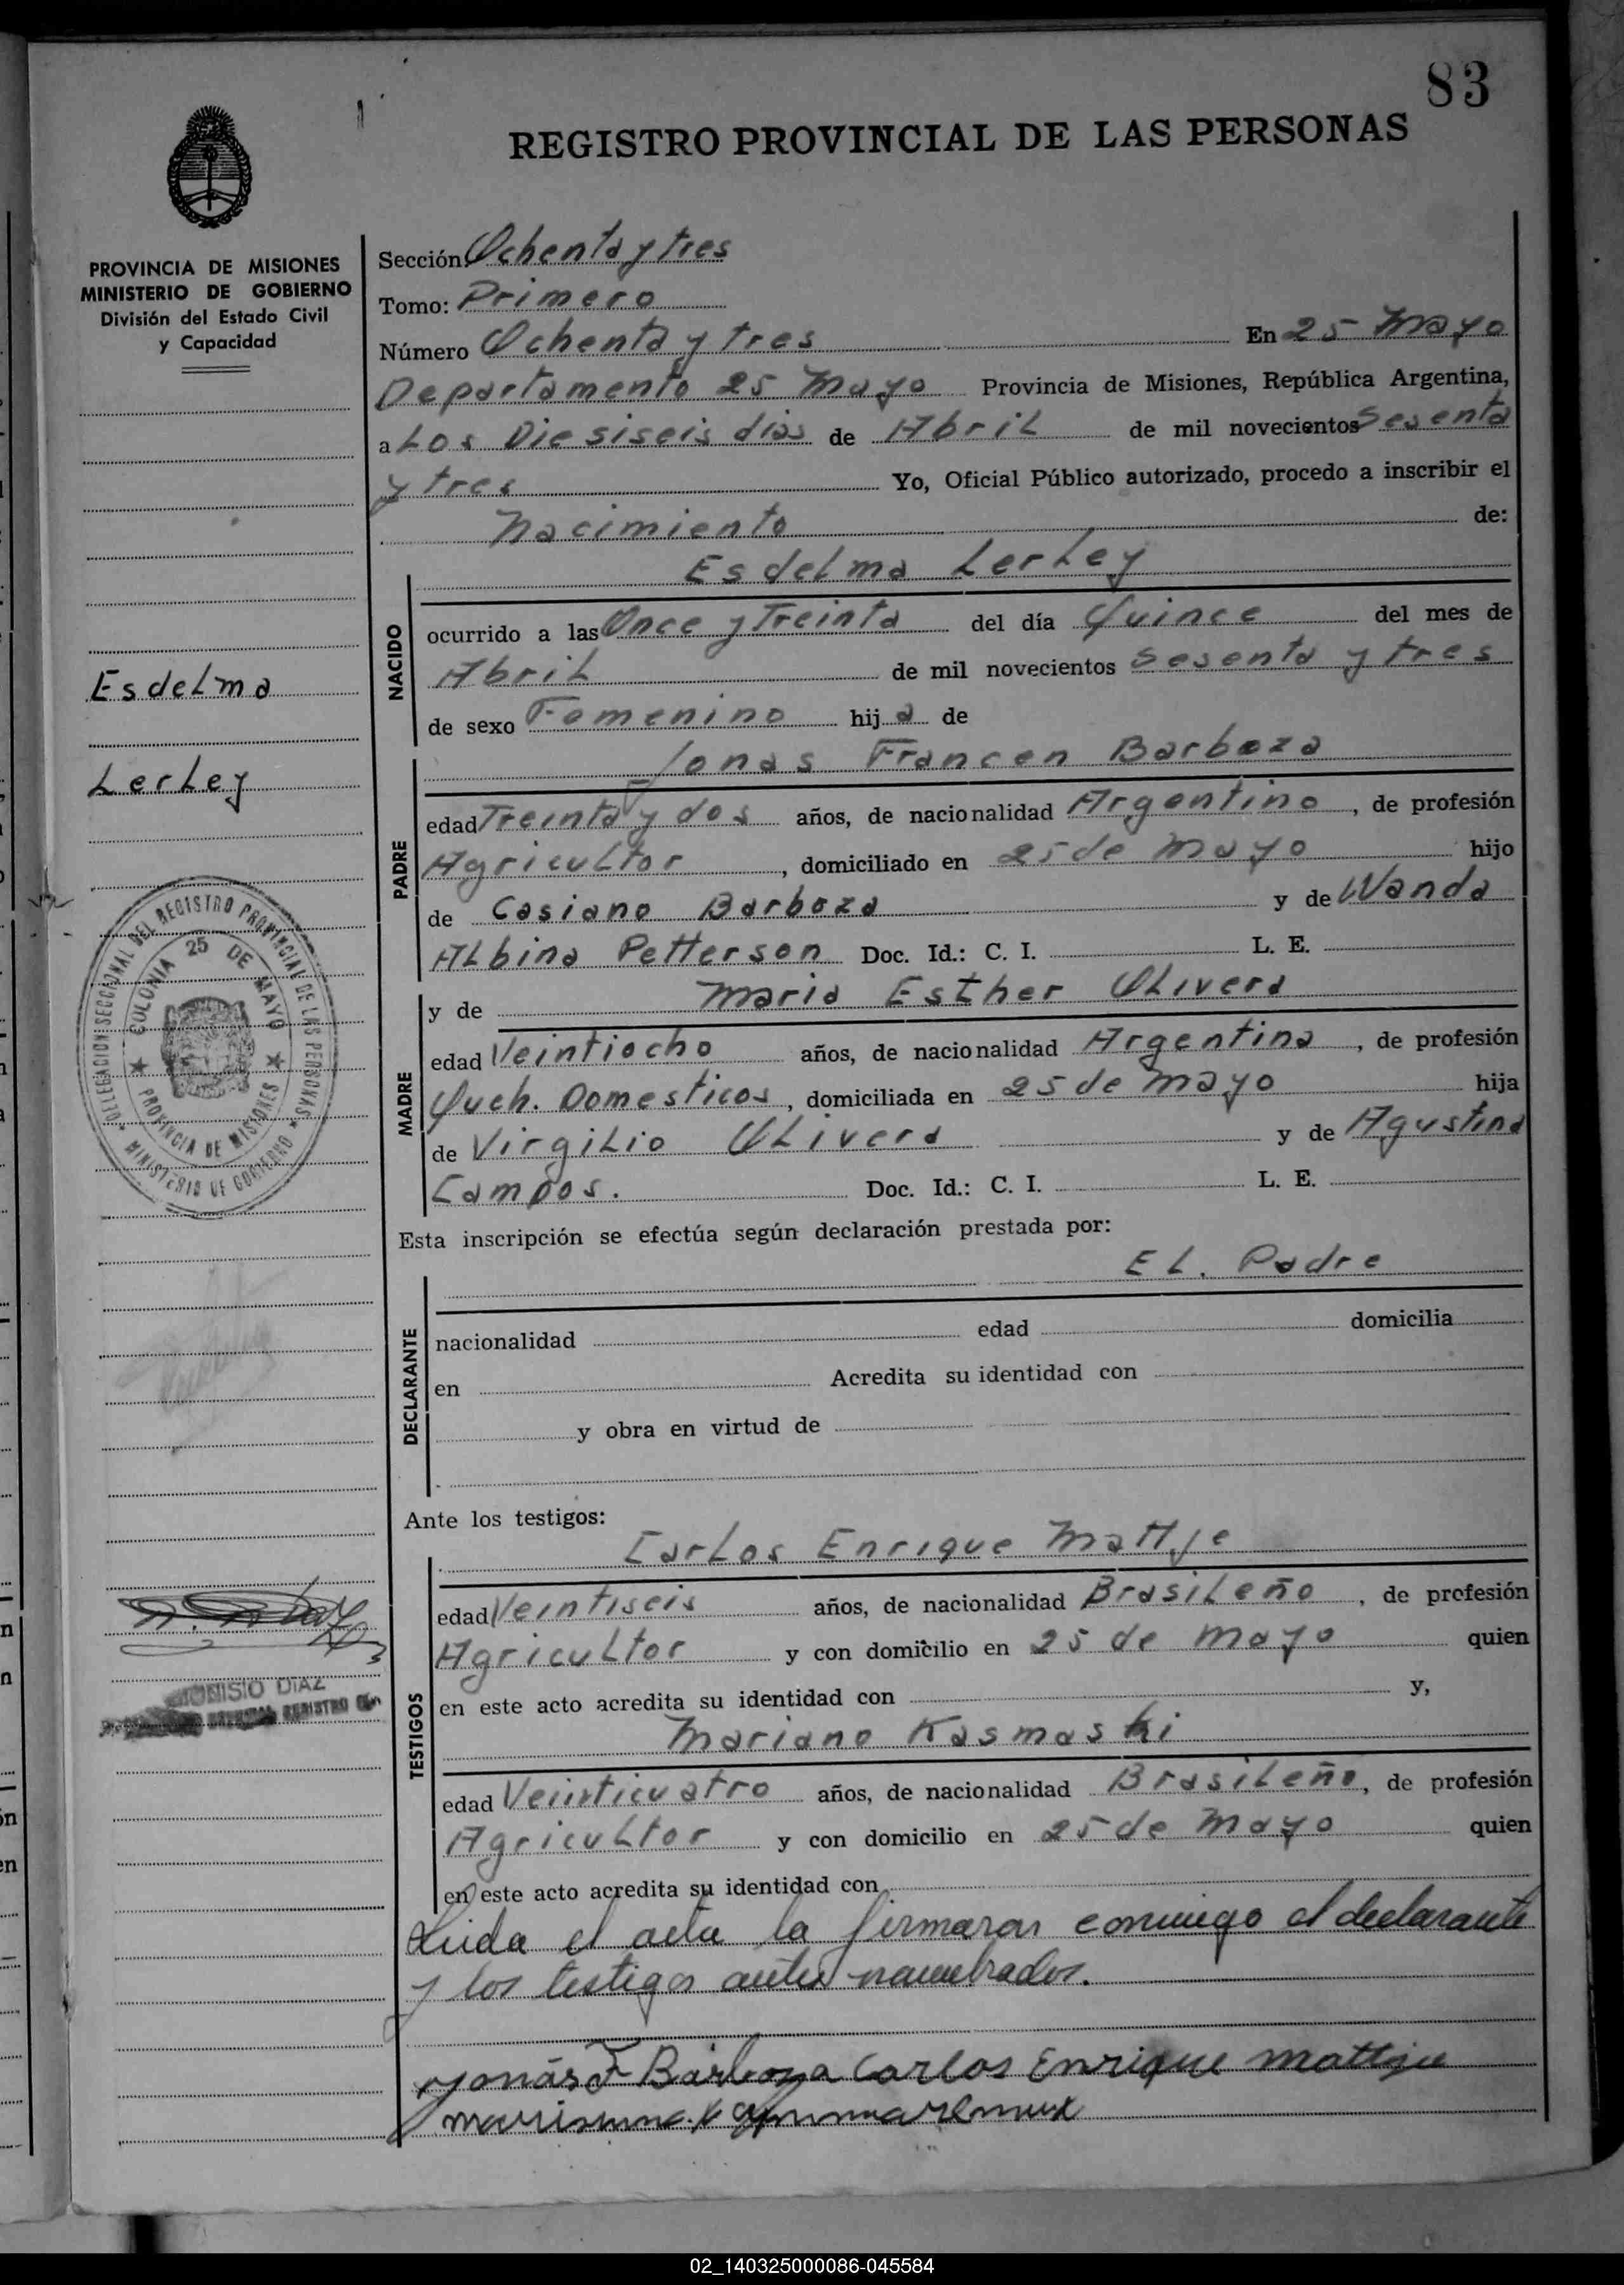 83
REGISTRO PROVINCIAL DE LAS PERSONAS
PROVINCIA DE MISIONES
MINISTERIO DE GOBIERNO
División del Estado Civil
y Capacidad
Esdelma
Lerley
DELEGACION SECCIONAL DEL REGISTRO PROVINCIAL DE LAS PERSONAS
MINISTERIO DE GOBIERNO
COLONIA 25 DE MAYO
PROVINCIA DE MISIONES
DIONISIO DIAZ
REGISTRO
Sección: Ochenta y tres
Tomo: Primero
Número Ochenta y tres En 25 Mayo
Departamento 25 Mayo Provincia de Misiones, República Argentina,
a Los Diesiseis dias de Abril de mil novecientos Sesenta
y tres Yo, Oficial Público autorizado, procedo a inscribir el
Nacimiento de:
Esdelma Lerley
NACIDO
ocurrido a las Once y Treinta del día Quince del mes de
Abril de mil novecientos Sesenta y tres
de sexo Femenino hij a de
Jonas Francen Barboza
PADRE
edad Treinta y dos años, de nacionalidad Argentino, de profesión
Agricultor, domiciliado en 25 de Mayo hijo
de Casiano Barboza y de Wanda
Albina Petterson Doc. Id.: C. I. L. E.
y de Maria Esther Olivera
MADRE
edad Veintiocho años, de nacionalidad Argentina, de profesión
Queh. Domesticos, domiciliada en 25 de Mayo hija
de Virgilio Olivera y de Agustina
Campos. Doc. Id.: C. I. L. E.
Esta inscripción se efectúa según declaración prestada por:
El. Padre
DECLARANTE
nacionalidad edad domicilia
en Acredita su identidad con
y obra en virtud de
Ante los testigos:
Carlos Enrique Mattje
TESTIGOS
edad Veintiseis años, de nacionalidad Brasileño, de profesión
Agricultor y con domicilio en 25 de Mayo quien
en este acto acredita su identidad con y,
Mariano Kasmaski
edad Veinticuatro años, de nacionalidad Brasileño, de profesión
Agricultor y con domicilio en 25 de Mayo quien
en este acto acredita su identidad con
Leida el acta la firmaran conmigo el declarante
y los testigos antes nombrados.
Jonás F Barboza Carlos Enrique Mattje
02_140325000086-045584